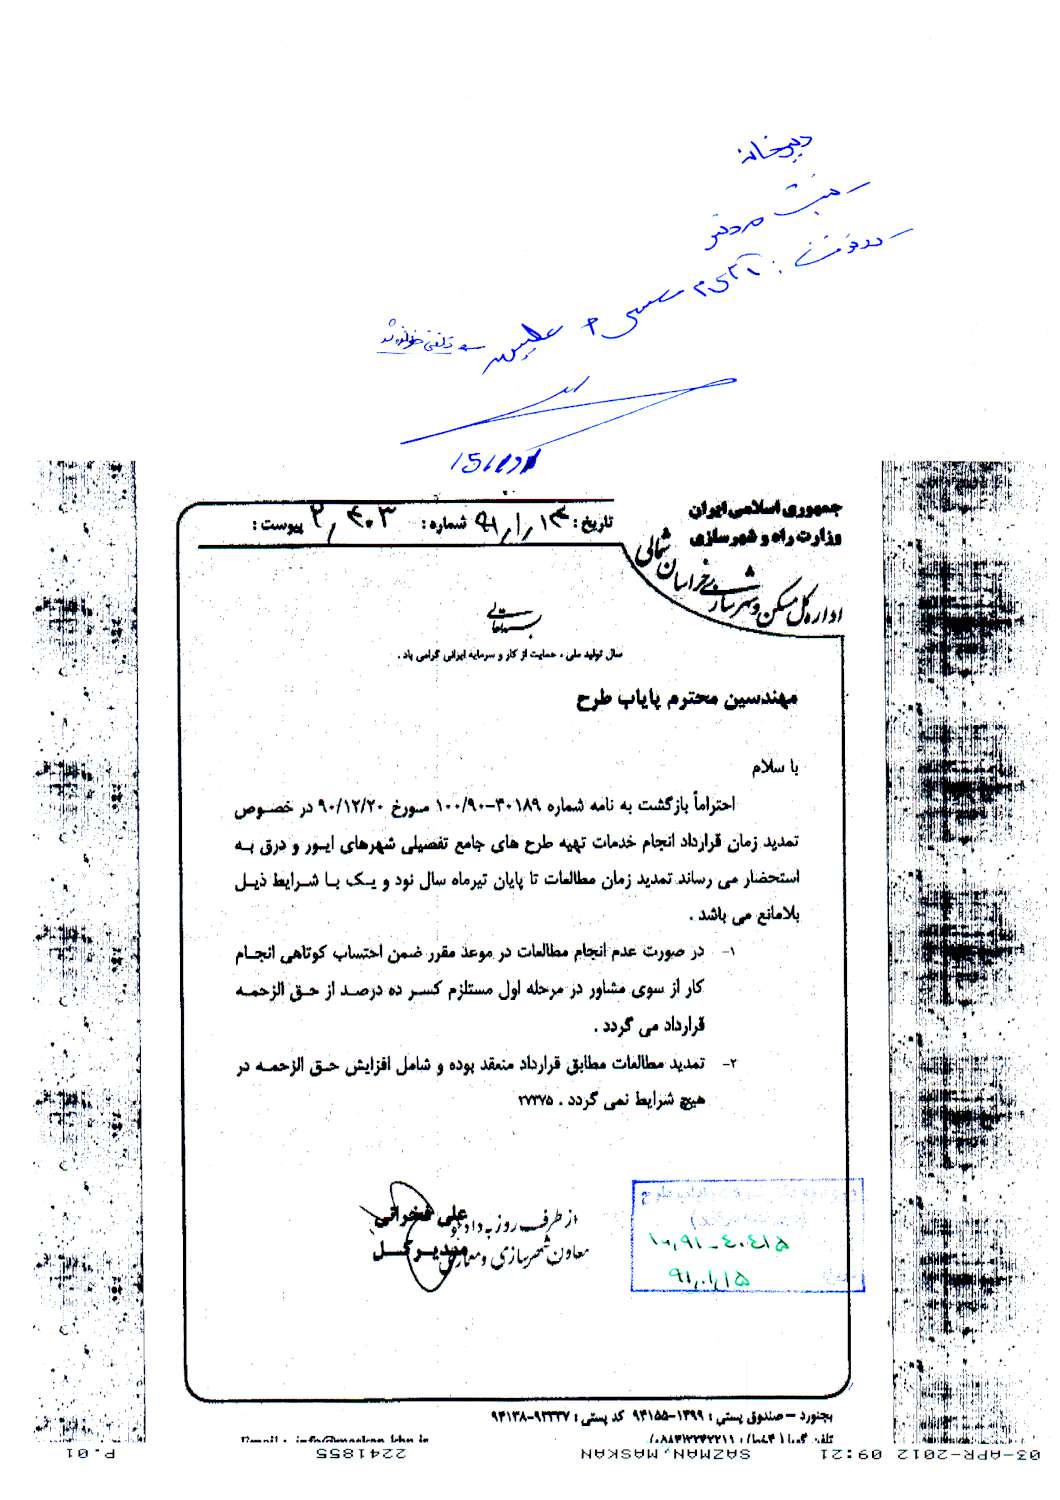 دبیرخانه
جمهوری اسلامی ایران
وزارت راه و شهرسازی
اداره کل مسکن و شهرسازی خراسان شمالی
تاریخ : ۹۱/۱/۱۴ شماره : ۲/۴۰۳ پیوست :
بسمه تعالی
سال تولید ملی ، حمایت از کار و سرمایه ایرانی گرامی باد .
مهندسین محترم پایاب طرح
با سلام
احتراماً بازگشت به نامه شماره ۳۰۱۸۹-۱۰۰/۹۰ مورخ ۹۰/۱۲/۲۰ در خصوص
تمدید زمان قرارداد انجام خدمات تهیه طرح های جامع تفصیلی شهرهای ایور و درق به
استحضار می رساند تمدید زمان مطالعات تا پایان تیرماه سال نود و یک با شرایط ذیل
بلامانع می باشد .
۱- در صورت عدم انجام مطالعات در موعد مقرر ضمن احتساب کوتاهی انجام
کار از سوی مشاور در مرحله اول مستلزم کسر ده درصد از حق الزحمه
قرارداد می گردد .
۲- تمدید مطالعات مطابق قرارداد منعقد بوده و شامل افزایش حق الزحمه در
هیچ شرایط نمی گردد . ۲۷۳۷۵
علی فخرانی
مدیر کل
از طرف روزبه دادرو
معاون شهرسازی و معماری
۱۰۰,۹۱-۴۰۴۱۵
۹۱,۰۱,۱۵
بجنورد – صندوق پستی : ۱۳۹۹-۹۴۱۵۵ کد پستی : ۹۳۳۳۷-۹۴۱۳۸
03-APR-2012 09:21 SAZMAN,MASKAN 2241855 P.01